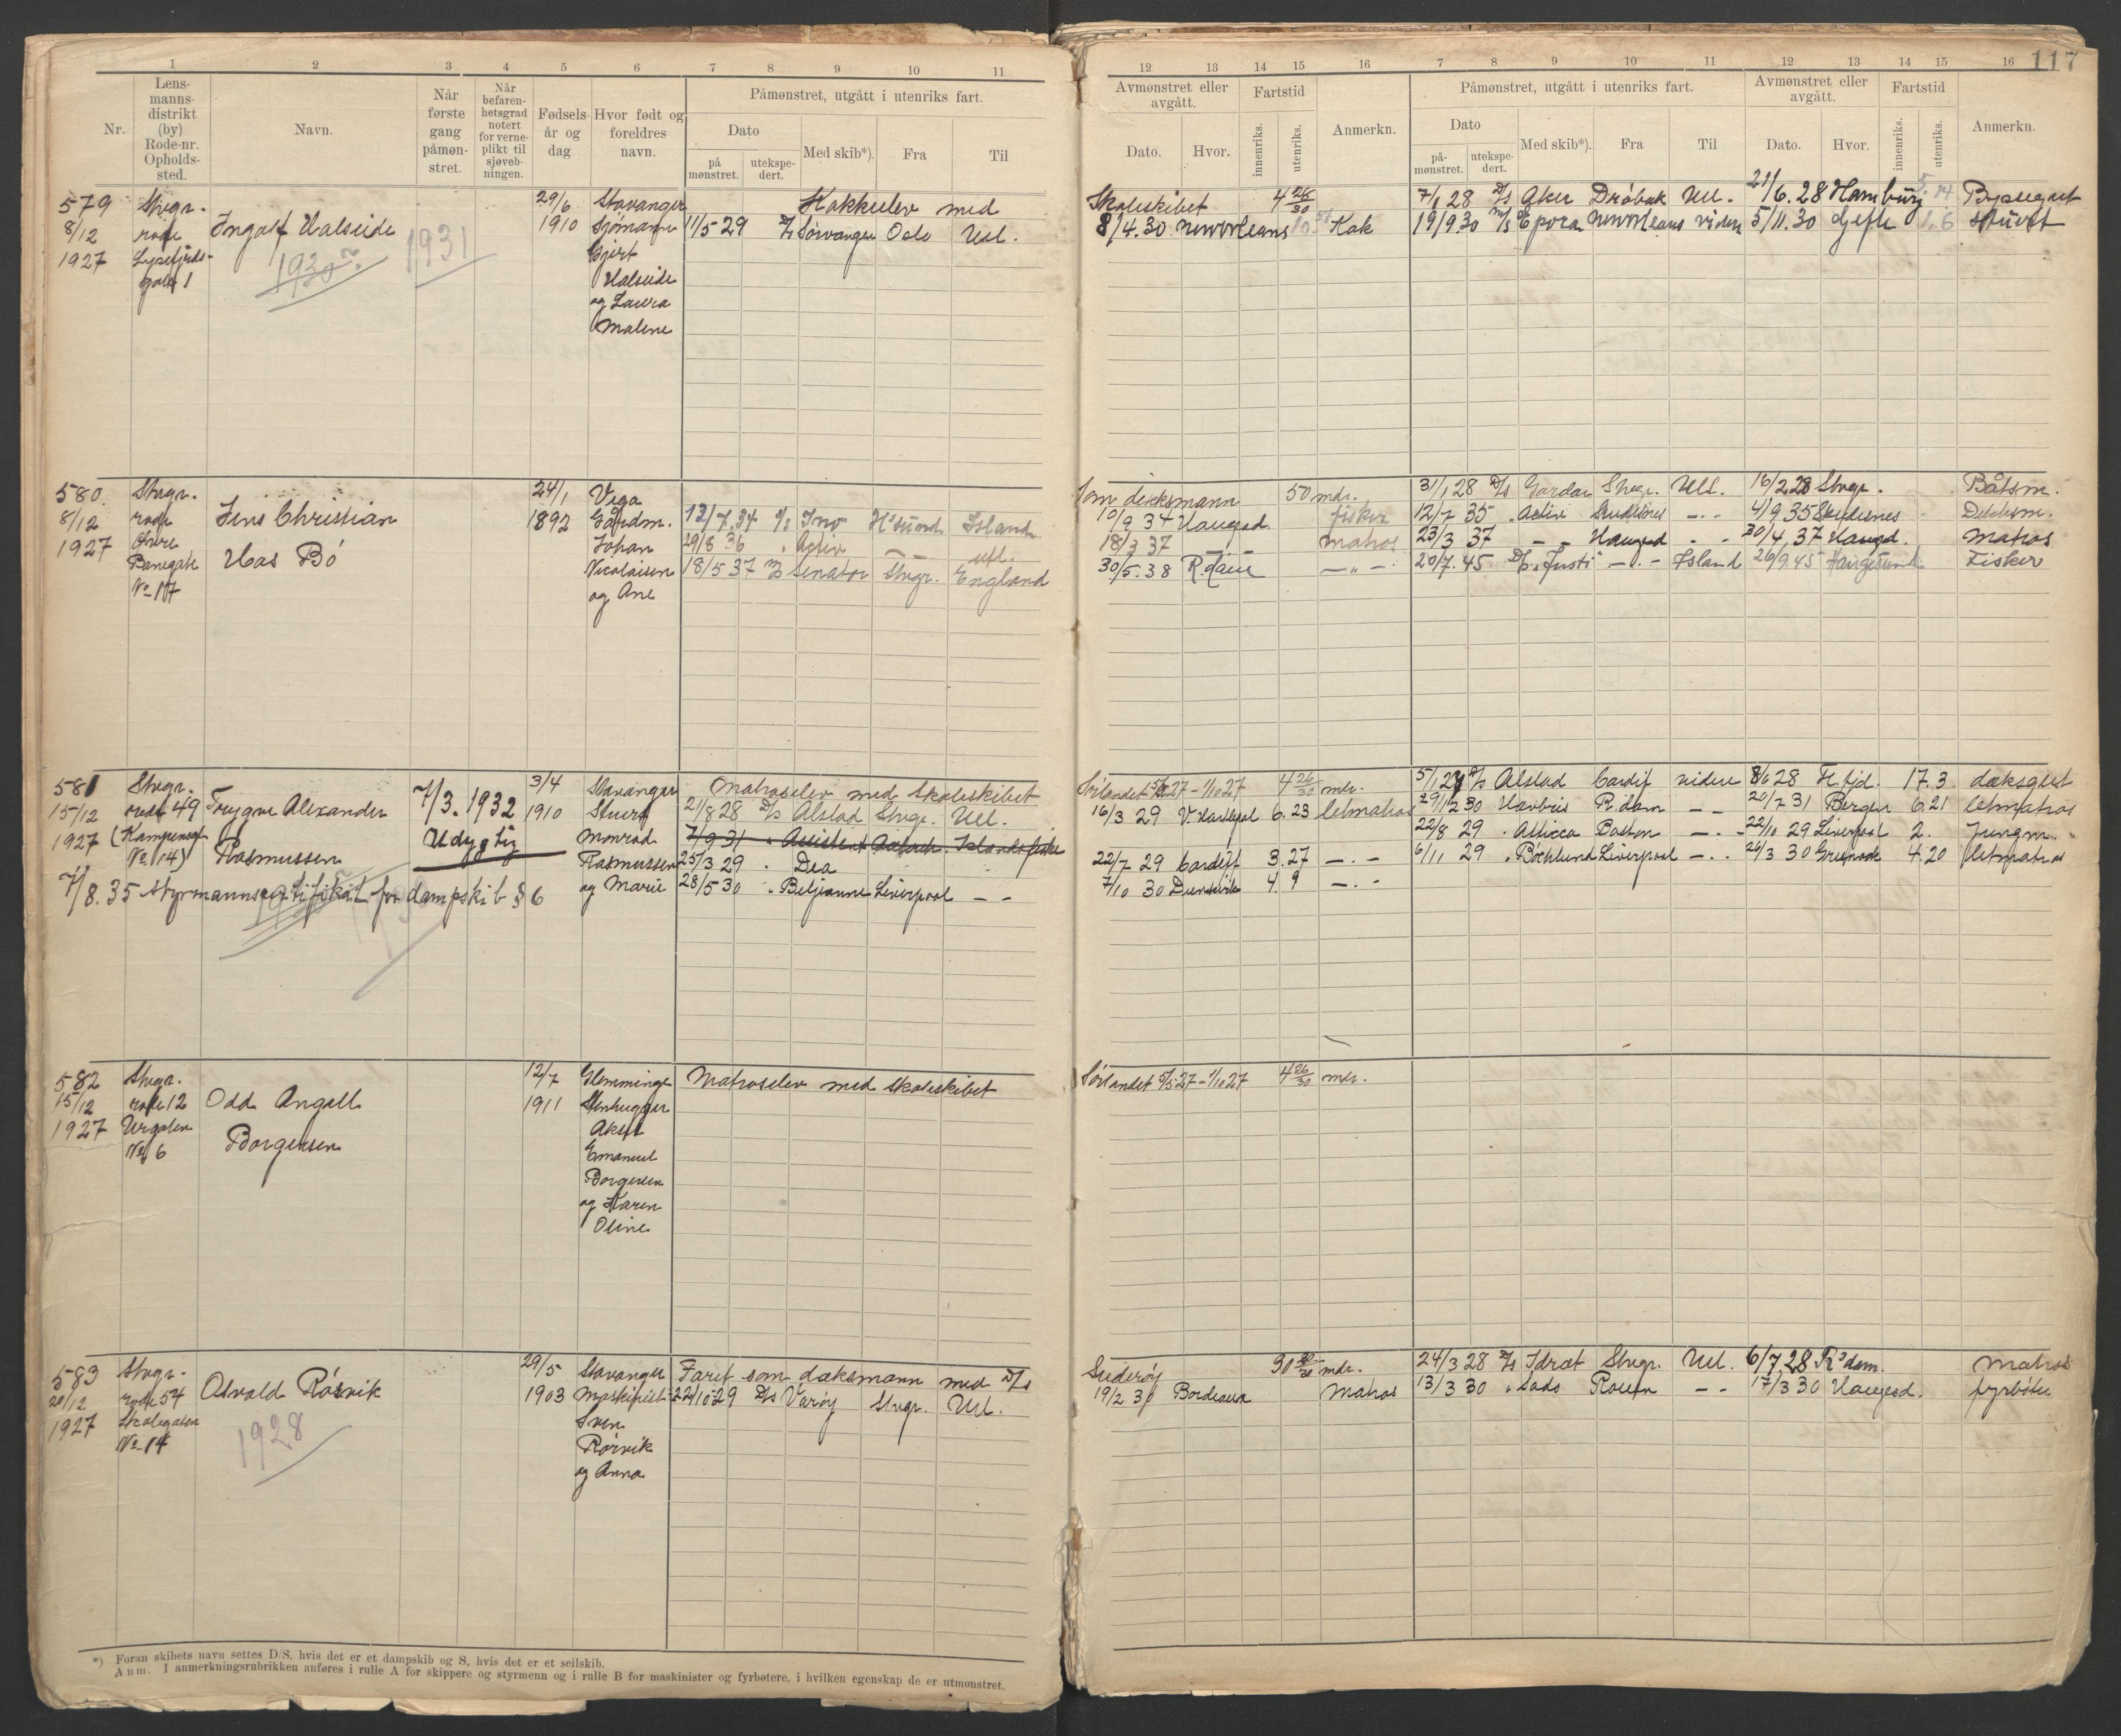 117
1 2 3 4 5 6 7 8 9 10 11
12 13 14 15 16 7 8 9 10 11 12 13 14 15 16
Nr.
Lens-
manns-
distrikt
(by)
Rode-nr.
Opholds-
sted.
Navn.
Når
første
gang
påmøn-
stret.
Når
befaren-
hetsgrad
notert
for verne-
plikt til
sjøveb-
ningen.
Fødsels-
år og
dag
Hvor født og
foreldres
navn.
Påmønstret, utgått i utenriks fart.
Dato
på
mønstret.
utekspe-
dert.
Med skib*).
Fra
Til
Avmønstret eller
avgått.
Dato.
Hvor.
Fartstid
innenriks.
utenriks.
Anmerkn.
Påmønstret, utgått i utenriks fart.
Dato
på-
mønstret.
utekspe-
dert.
Med skib*).
Fra
Til
Avmønstret eller
avgått.
Dato.
Hvor.
Fartstid
innenriks.
utenriks.
Anmerkn.
579
8/12
1927
Stvgr.
rode
Ingolf Halseide
1931
29/6
1910
Stavanger
Sjømann
Gjert
Halseide
og Laura
Malene
Kokkelev med Skoleskibet 4 26/30
11/5 29 D/S Sørvangen Oslo Utl. 8/4.30 New Orleans Kok
7/1 28 D/S Aker Drøbak Utl. 21/6.28 Hamburg
19/9.30 M/S New Orleans viden 5/11.30 Gefle
580
8/12
1927
Stvgr.
rode
Øvre
No 17
Jens Christian
Aas Bø
24/1
1892
Vega
Gårdm.
Johan
Nicolaisen
og Ane
Som dekksmann 50 mdr.
12/7.34 Ino H'sund Island 10/9 34 Haugesd. fisker
29/8 36 " Activ — utl. 18/3 37 — matros
18/5 37 Senator Stvgr. England 30/5.38 R.dam — " —
31/1 28 D/S Gardar Stvgr. Utl. 16/2.28 Stvgr. Båtsm.
12/7 35 " Activ Skudesnes — 4/9 35 Skudesnes Dekksm.
23/3 37 — Haugesd — 30/4.37 Haugesd. Matros
20/7.45 "Justi" — Island 26/9.45 Haugesund Fisker
581
15/12
1927
Stvgr.
rode 49
(Kampensgt.
No 14)
Trygve Alexander
Rasmussen
7/3.1932
Udygtig
3/4
1910
Stavanger
Stuert
Monrad
Rasmussen
og Marie
7/8.35 Styrmannscertifikat for dampskib § 6
Matroselev med Skoleskibet Sørlandet 5/5 27 – 1/10 27 4 26/30 mdr.
21/8 28 D/S Alstad Stvgr. Utl. 16/3 29 V. Hartlepol 6.23 letmatros
7/9 31 " Assistent Islandsfiske
25/3 29 " Dea 22/7 29 Cardiff 3.27 — " —
28/5 30 " Beljeanne Liverpool — 7/10 30 Dunsvik 4.9 — " —
Alstad Cardif videre 8/6 28 17.3 dæksgut
29/12 30 Havbris R.dam — 20/7 31 Bergen 6.21 letmatros
22/8 29 " Attica Boston — 22/10 29 Liverpool 2. Jungm.
6/11 29 " Liverpool — 26/3 30 4.20 letmatros
582
15/12
1927
Stvgr.
rode 12
Urgaten
No 6
Odd Angell
Borgersen
12/7
1911
Glemminge
Stenhugger
Aksel
Emanuel
Borgersen
og Karen
Oline
Matroselev med Skoleskibet Sørlandet 5/5 27 – 1/10 27 4 26/30 mdr.
583
20/12
1927
Stvgr.
rode 54
Skolegaten
No 14
Osvald Rørvik
1928
29/5
1903
Stavanger
Maskinist
Sven
Rørvik
og Anna
Faret som dæksmann med D/S Suderøy mdr.
22/10 29 D/S Varøy Stvgr. Utl. 19/2 30 Bordeaux Matros
24/3 28 D/S Idræt Stvgr. Utl. 6/7.28 R'dam. Matros
13/3 30 " Sado Rouen — 17/3 30 Haugesd. fyrbøter
*) Foran skibets navn settes D/S, hvis det er et dampskib og S, hvis det er et seilskib.
Anm. I anmerkningsrubrikken anføres i rulle A for skippere og styrmenn og i rulle B for maskinister og fyrbøtere, i hvilken egenskap de er utmønstret.